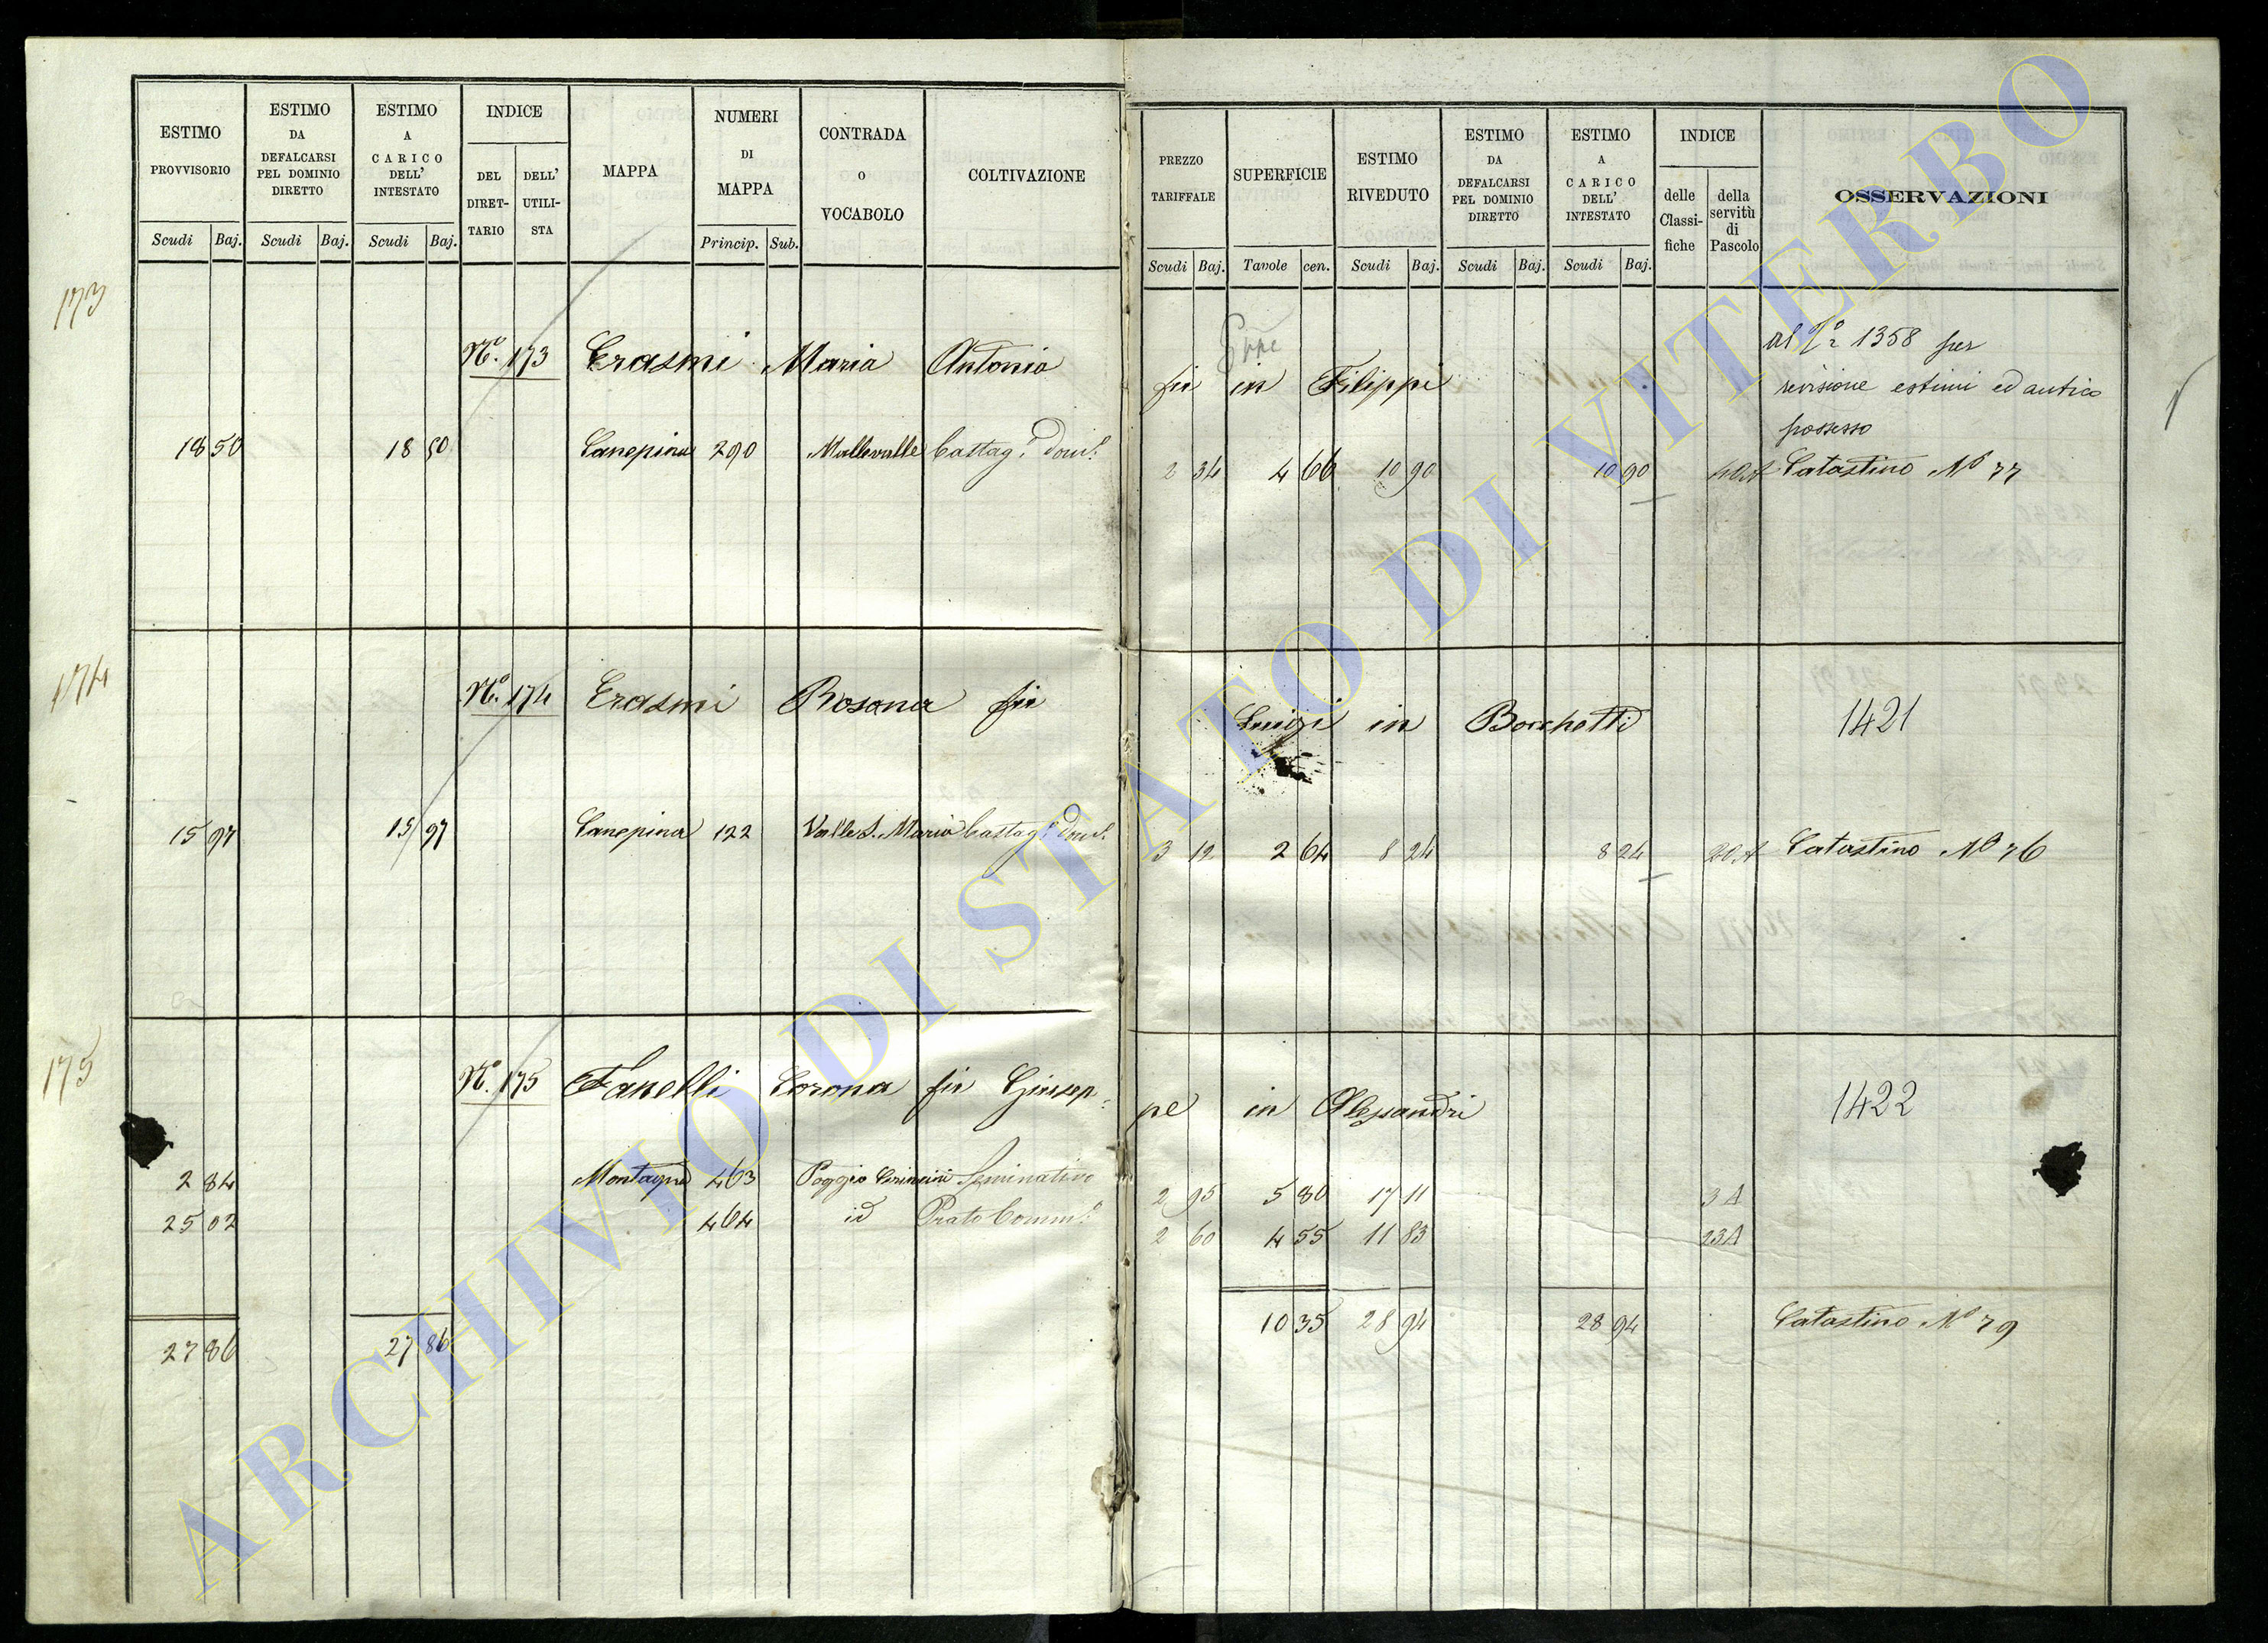 ESTIMO PROVVISORIO
ESTIMO DA DEFALCARSI PEL DOMINIO DIRETTO
ESTIMO A CARICO DELL' INTESTATO
INDICE
DEL DIRET-TARIO
DELL' UTILI-STA
MAPPA
NUMERI DI MAPPA
CONTRADA O VOCABOLO
COLTIVAZIONE
Scudi Baj. Scudi Baj. Scudi Baj. Princip. Sub.
PREZZO TARIFFALE
SUPERFICIE
ESTIMO RIVEDUTO
ESTIMO DA DEFALCARSI PEL DOMINIO DIRETTO
ESTIMO A CARICO DELL' INTESTATO
INDICE
delle Classi-fiche
della servitù di Pascolo
OSSERVAZIONI
Scudi Baj. Tavole cen. Scudi Baj. Scudi Baj. Scudi Baj.
173
Nº. 173 Erasmi Maria Antonia
fu in Filippi
al Nº 1358 per
revisione estimi ed antico
possesso
18 50 18 50 Canepina 290 Mallevalle Castag. Dom.
2 34 4 66 10 90 10 90 Catastino Nº 77
174
Nº. 174 Erasmi Rosana fu
Luigi in Bocchetti 1421
15 97 15 97 Canepina 122 Valle S. Maria Castag. Dom.
3 12 2 64 8 24 8 24 20A Catastino Nº 76
175
Nº. 175 Fanelli Corona fu Giusep-
pe in Alessandri 1422
2 84 Montagna 463 Poggio Seminativo
2 95 5 80 17 11 3 A
25 02 464 id Prato Comm.
2 60 4 55 11 83 23A
27 86 27 86
10 35 28 94 28 94 Catastino Nº 79
ARCHIVIO DI STATO DI VITERBO